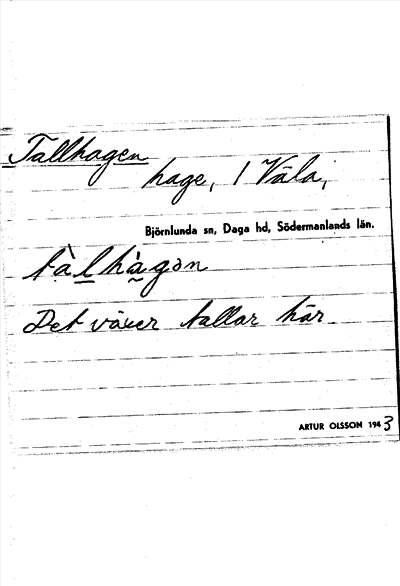 Tallhagen
hage, 1 Väla,
Björnlunda sn, Daga hd, Södermanlands län.
tàlhàgən
Det växer tallar här
ARTUR OLSSON 1943